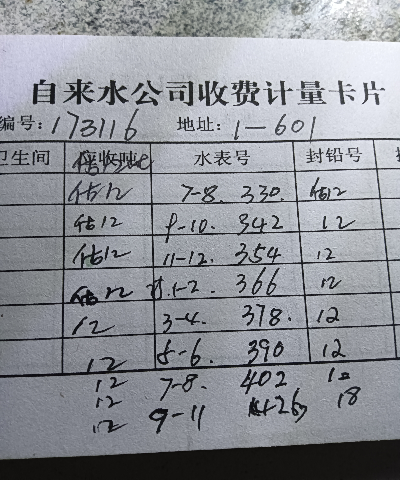 自来水公司收费计量卡片
编号: 173116 地址: 1-601
卫生间 水表号 封铅号
估12 7-8. 330. 估12
估12 9-10. 342 12
估12 11-12. 354 12
估12 1-2 366 12
12 3-4. 378. 12
12 5-6. 390 12
12 7-8. 402 12
12
12 9-11 426 18